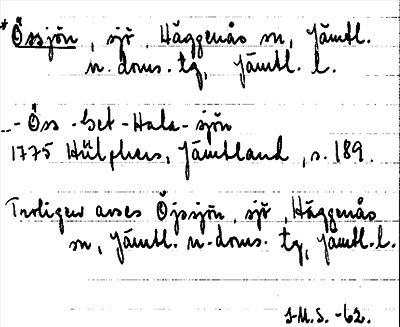 *Össjön, sjö, Häggenås sn, Jämtl.
n. doms. tg, Jämtl. l.
..- Öss-bet-Hala-sjön
1775 Hülphers, Jämtland, s. 189.
Troligen avses Öjsjön, sjö, Häggenås
sn, Jämtl. n. doms. tg, Jämtl. l.
J.M.S. -62.